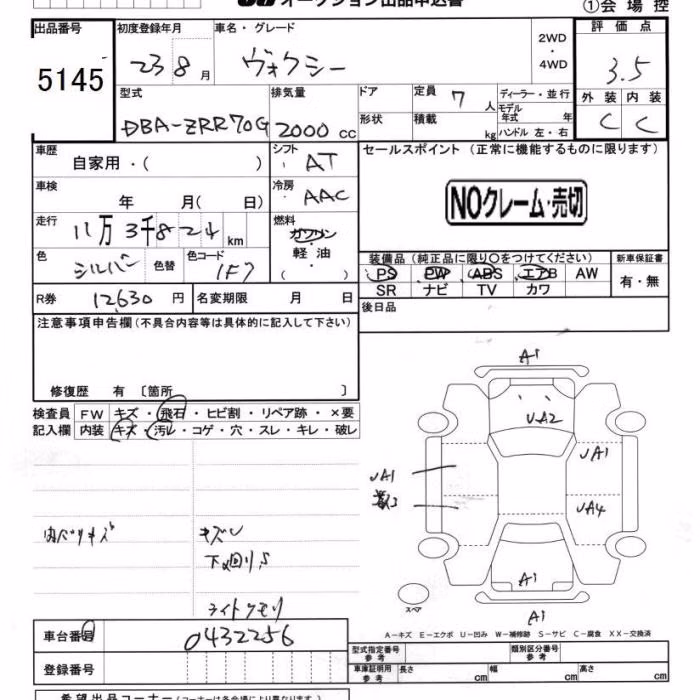 オークション出品申込書
①会場控
出品番号
5145
初度登録年月
23 8月
車名・グレード
ヴォクシー
2WD
・
4WD
評価点
3.5
外装 内装
C C
型式
DBA-ZRR70G
排気量
2000 cc
ドア
形状
定員 7 人
積載 kg
ディーラー・並行
モデル年式 年
ハンドル 左・右
車歴
自家用・( )
シフト
AT
セールスポイント (正常に機能するものに限ります)
NOクレーム・売切
車検
年 月( 日)
冷房
AAC
走行
11万3千824km
燃料
ガソリン
・
軽油
( )
色
シルバー
色替
色コード
1F7
装備品 (純正品に限り○をつけてください)
PS PW ABS エアB AW
SR ナビ TV カワ
新車保証書
有・無
R券 12,630円
名変期限 月 日
後日品
注意事項申告欄 (不具合内容等は具体的に記入して下さい)
修復歴 有 〔箇所 〕
検査員記入欄
FW キズ・飛石・ヒビ割・リペア跡・×要
内装 キズ・汚レ・コゲ・穴・スレ・キレ・破レ
キズU
下廻りS
ライトクモリ
A1
UA2
UA1
UA1
UA4
A1
A1
スペア
A-キズ E-エクボ U-凹み W-補修跡 S-サビ C-腐食 XX-交換済
車台番号
0432256
登録番号
型式指定番号
参考
類別区分番号
参考
車庫証明用
参考
長さ cm 幅 cm 高さ cm
希望出品コーナー (コーナーは各会場により異なります)